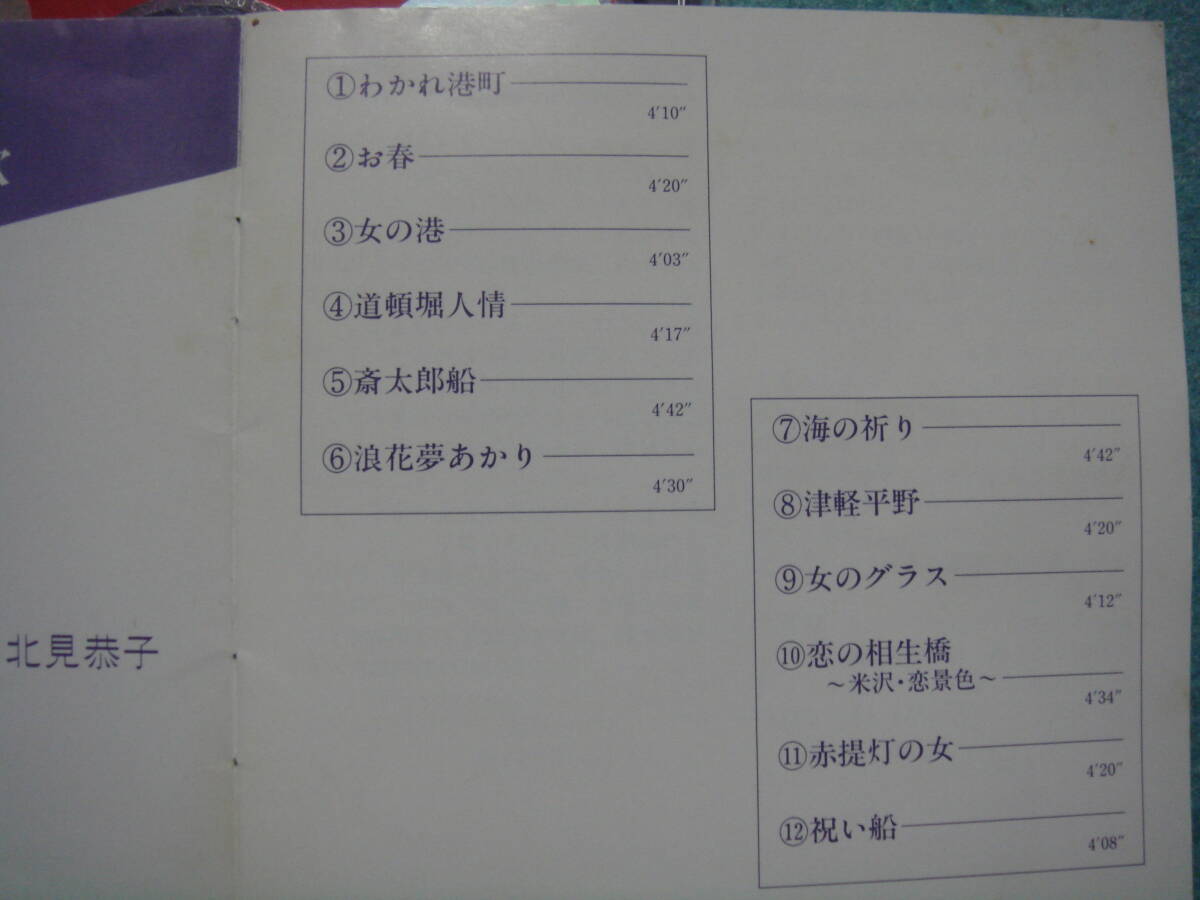 北見恭子
①わかれ港町
4'10"
②お春
4'20"
③女の港
4'03"
④道頓堀人情
4'17"
⑤斎太郎船
4'42"
⑥浪花夢あかり
4'30"
⑦海の祈り
4'42"
⑧津軽平野
4'20"
⑨女のグラス
4'12"
⑩恋の相生橋
～米沢・恋景色～
4'34"
⑪赤提灯の女
4'20"
⑫祝い船
4'08"